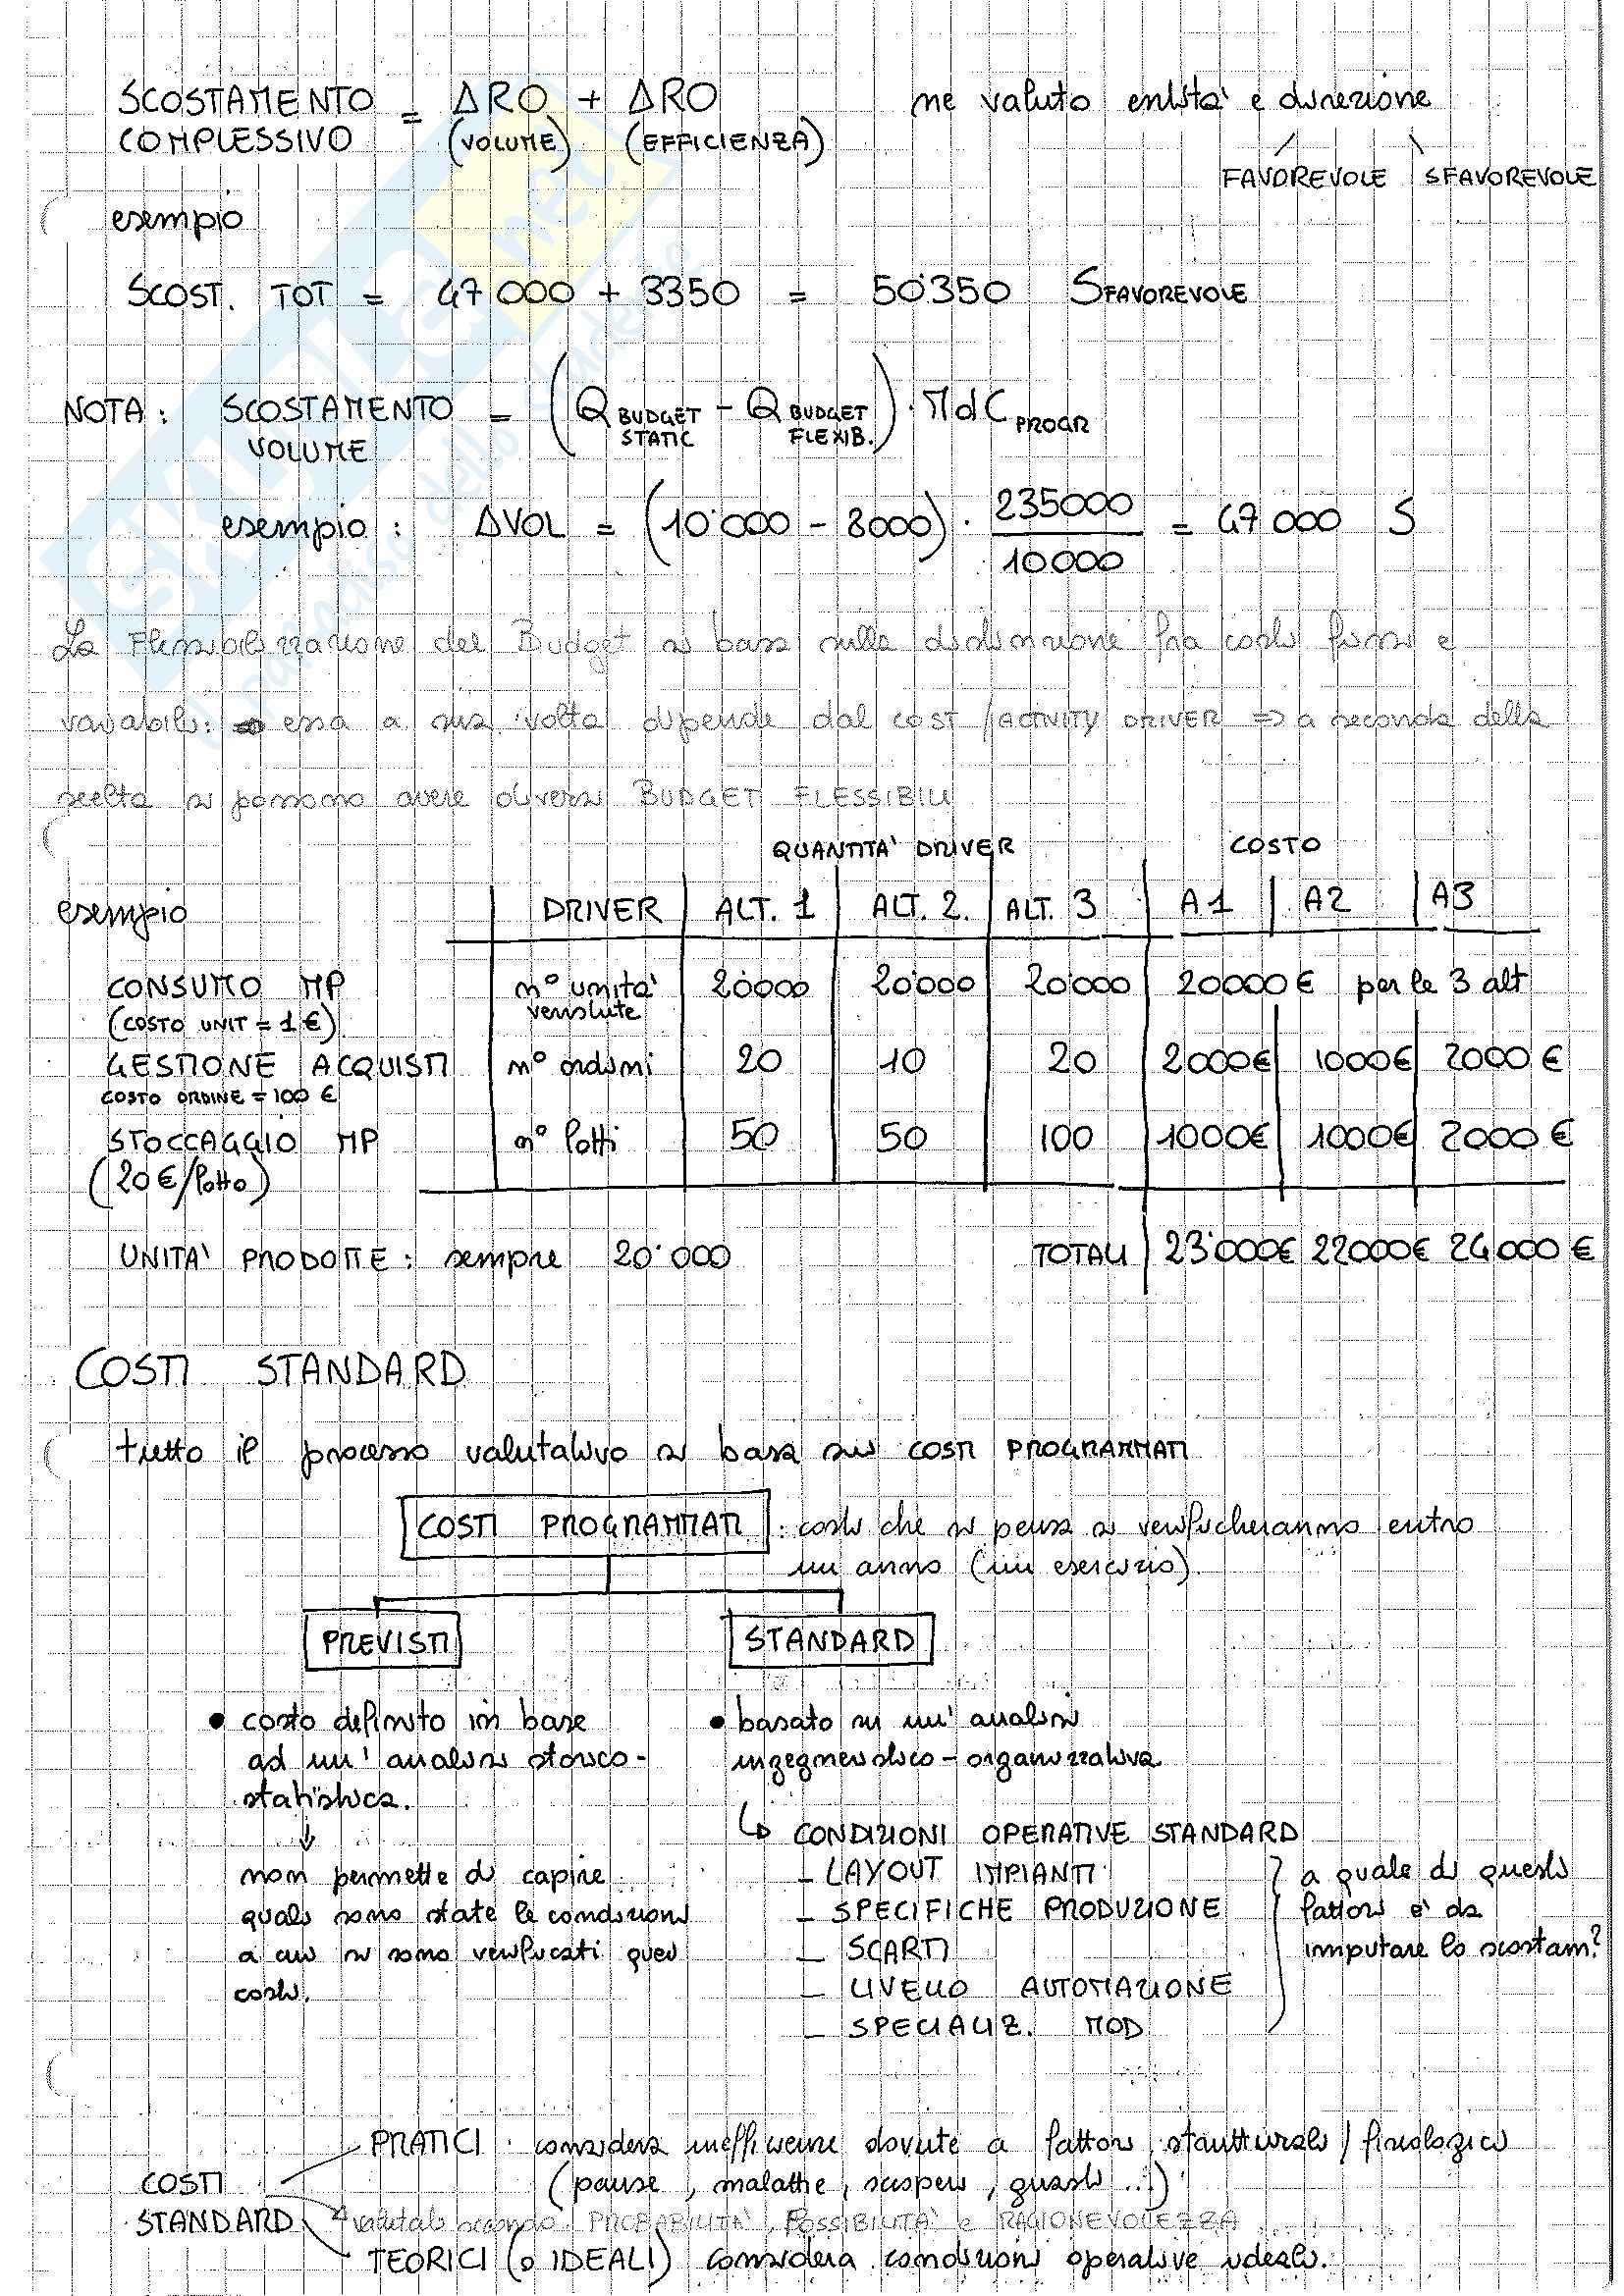 SCOSTAMENTO COMPLESSIVO = ΔRO (VOLUME) + ΔRO (EFFICIENZA) ne valuto entità e direzione
FAVOREVOLE SFAVOREVOLE
esempio
SCOST. TOT = 47000 + 3350 = 50'350 SFAVOREVOLE
NOTA: SCOSTAMENTO VOLUME = (Q BUDGET STATIC - Q BUDGET FLEXIB.) · MdC PROGR
esempio: ΔVOL = (10'000 - 8000) · 235000 / 10000 = 47000 S
La Flessibilizzazione del Budget si basa sulla distinzione fra costi fissi e
variabili: essa a sua volta dipende dal COST/ACTIVITY DRIVER => a seconda della
scelta si possono avere diversi BUDGET FLESSIBILI
QUANTITA' DRIVER COSTO
esempio DRIVER ALT. 1 ALT. 2. ALT. 3 A1 A2 A3
CONSUMO MP n° unità vendute 20000 20'000 20'000 20000€ per le 3 alt
(COSTO UNIT = 1€)
GESTIONE ACQUISTI n° ordini 20 10 20 2000€ 1000€ 2000€
COSTO ORDINE = 100 €
STOCCAGGIO MP n° lotti 50 50 100 1000€ 1000€ 2000€
(20€/lotto)
UNITA' PRODOTTE: sempre 20'000 TOTALI 23'000€ 22000€ 24000€
COSTI STANDARD
tutto il processo valutativo si basa sui COSTI PROGRAMMATI
COSTI PROGRAMMATI: costi che si pensa si verificheranno entro
un anno (un esercizio).
PREVISTI STANDARD
• costo definito in base
ad un'analisi storico-
statistica.
↓
non permette di capire
quali sono state le condizioni
a cui si sono verificati quei
costi.
• basato su un'analisi
ingegneristico-organizzativa
↳ CONDIZIONI OPERATIVE STANDARD
- LAYOUT IMPIANTI
- SPECIFICHE PRODUZIONE
- SCARTI
- LIVELLO AUTOMAZIONE
- SPECIALIZ. MOD
a quale di questi
fattori è da
imputare lo scostam?
COSTI STANDARD
PRATICI: considera inefficienze dovute a fattori strutturali/fisiologici
(pause, malattie, scioperi, guasti...)
valutati secondo PROBABILITA', POSSIBILITA' e RAGIONEVOLEZZA
TEORICI (o IDEALI) considera condizioni operative ideali.